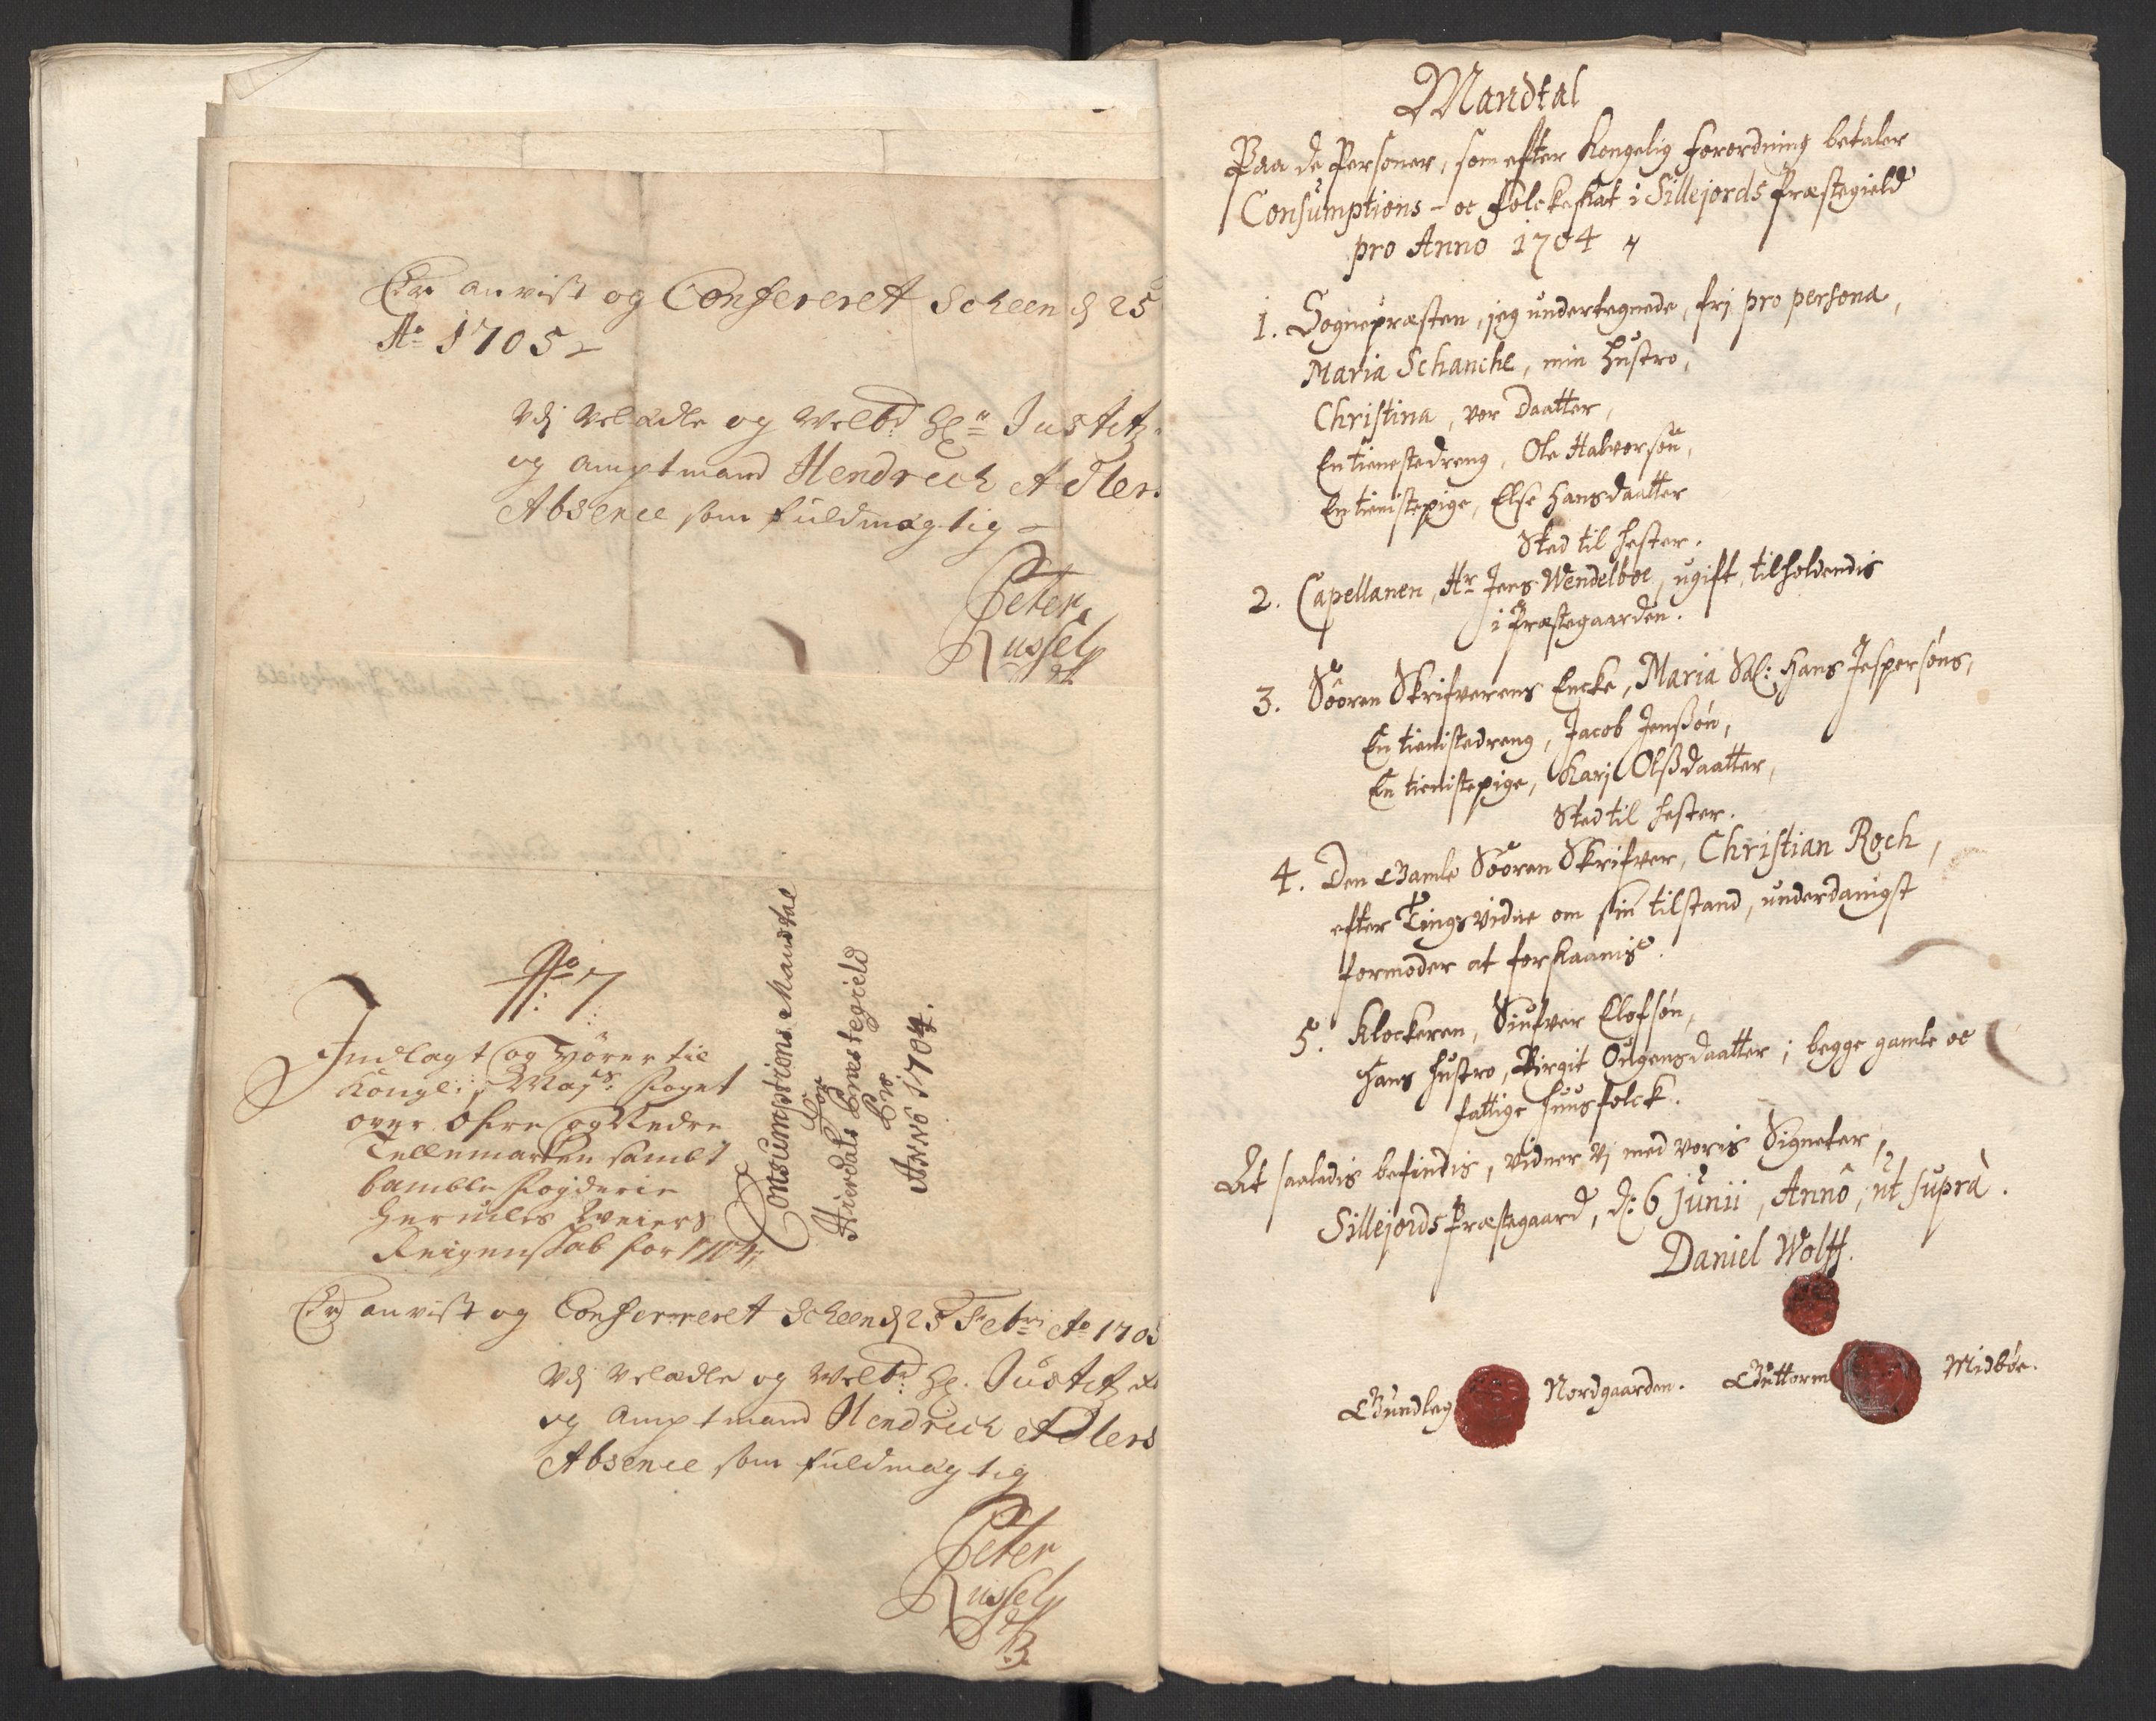 Er anvist og Confereret Scheen d 25
Ao 1705
Udj Velædle og Welbd Hr Justitz
og Amptmand Hendrich Adlers
Absence som fuldmægtig
Peter
Russel
No 7
Indlagt og hörer til
Kongl: Mayts: foget
over Öfre og Nedre
Tellemarken sambt
bamble fogderie
Hermles Weiers
Reigenskab for 1704
Consumptions Mandtal
For
Hierdals Prestegield
Pro
Anno 1704.
Er anvist og Conferreret Scheen d 25 Febri Ao 1705
Udj Velædle og Welbd: Hr. Justitz
og Amptmand Hendrich Adlers
Absence som fuldmægtig
Peter
Russel
Mandtal
Paa de Personer, som efter Kongelig forordning betaler
Consumptions- oc Folckeskat i Sillejords Præstegield
pro Anno 1704
1. Sognepræsten, jeg undertegnede, fri pro persona,
Maria Schanche, min Hustro,
Christina, vor Daatter,
En tienestedreng, Ole Halvorsøn,
En tienistepige, Else Hansdaatter
Sted til Hester.
2. Capellanen, Hr Jens Wendelboe, ugift, tilholdendis
i Præstegaarden.
3. Sooren Skrifverens Encke, Maria Sal: Hans Jespersøns,
En tienistedreng, Jacob Jenssøn,
En tienistepige, Kari Olssdaatter,
Sted til Hester.
4. Den Gamle Sooren Skrifver, Christian Roch,
efter Tingsvidne om sin tilstand, underdanigst
formoder at forskaanis.
5. Klockeren, Siufver Elofsøn,
Hans Hustro, Birgit Ougensdaatter; begge gamle oc
fattige Huusfolck.
At saaledis befindis, vidner vj med voris Signeter,
Sillejords Præstegaard, d: 6 Junii, Annô, ut suprà.
Daniel Wolff.
Gundleg Nordgaarden. Guttorm Midbøe.